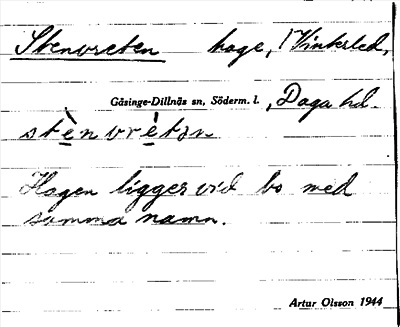 Stenvreten hage, Vinksled,
Gåsinge-Dillnäs sn, Söderm. l., Daga hd.
stè̱nvrè̱tən
Hagen ligger vid bo med
samma namn.
Artur Olsson 1944